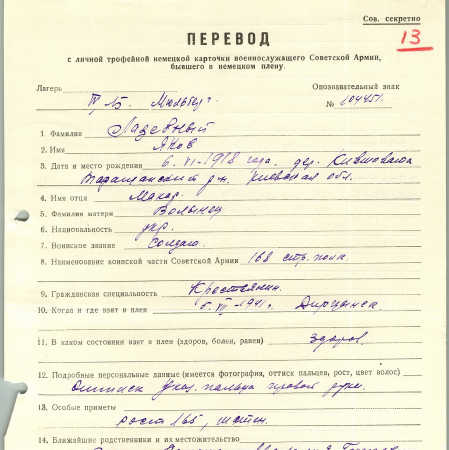 Сов. секретно
13
ПЕРЕВОД
с личной трофейной немецкой карточки военнослужащего Советской Армии,
бывшего в немецком плену.
Лагерь Опознавательный знак
IV Б. Мюльберг. № 104451.
1. Фамилия Лазебный
2. Имя Яков
3. Дата и место рождения 6. VI-1918 года, дер.
Таращанский р-н. Киевская обл.
4. Имя отца Макар.
5. Фамилия матери Волынец
6. Национальность укр.
7. Воинское звание Солдат
8. Наименование воинской части Советской Армии 168 стр. полк.
9. Гражданская специальность Крестьянин.
10. Когда и где взят в плен VII-1941.
11. В каком состоянии взят в плен (здоров, болен, ранен) здоров.
12. Подробные персональные данные (имеется фотография, оттиск пальцев, рост, цвет волос)
Оттиск указ. пальца правой руки.
13. Особые приметы
рост 165,
14. Ближайшие родственники и их местожительство